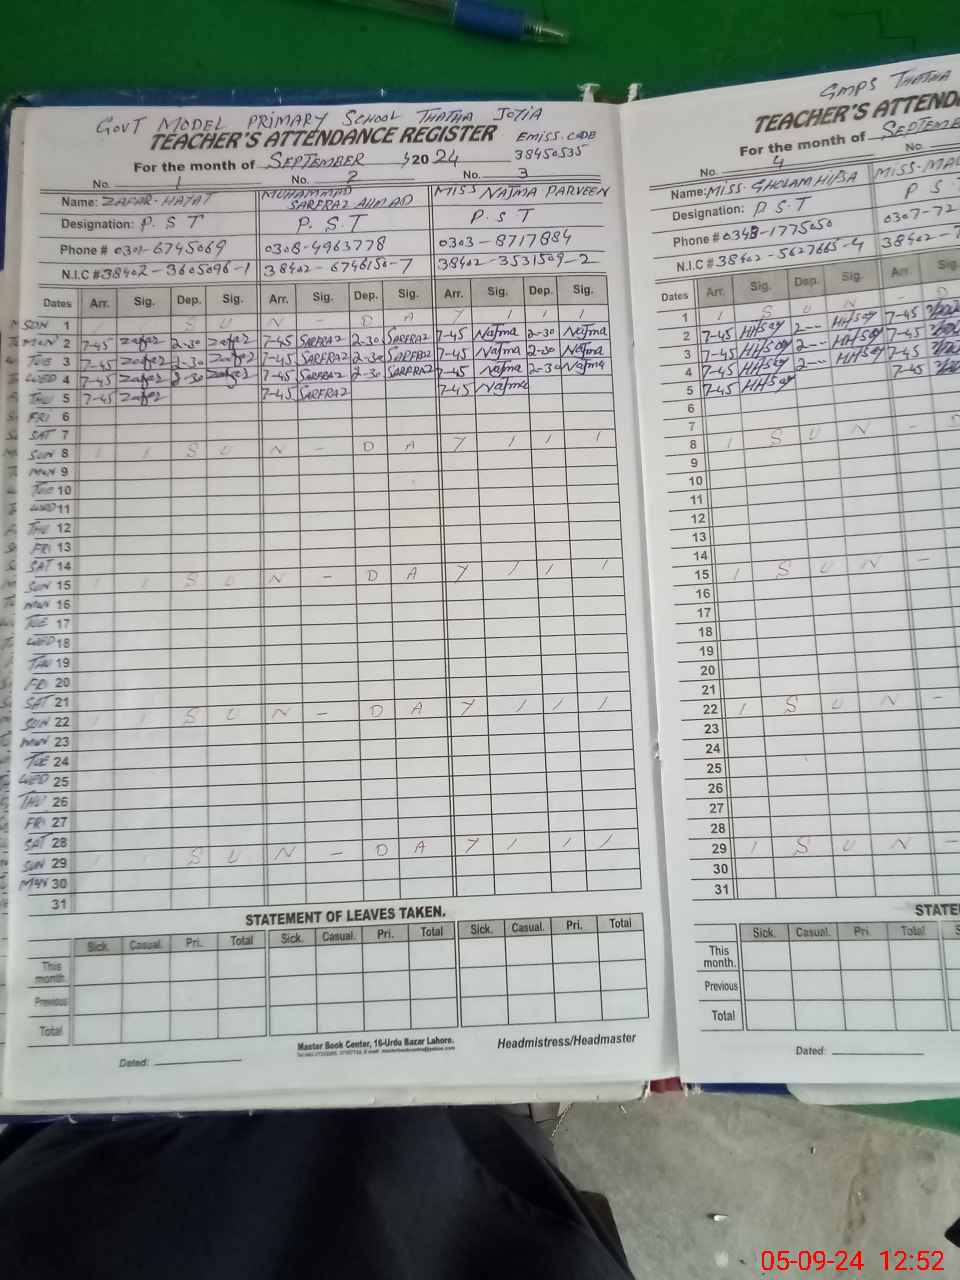 GOVT MODEL PRIMARY SCHOOL THATHA JOTIA
TEACHER'S ATTENDANCE REGISTER EMISS. CODE
For the month of SEPTEMBER 2024 38450535
No. 1 No. 2 No. 3
Name: ZAFAR HAYAT MUHAMMAD SARFRAZ AHMAD MISS NAJMA PARVEEN
Designation: P. S T P. S. T P. S T
Phone # 0301-6745069 0308-4963778 0303-8717884
N.I.C # 38402-3605096-1 38402-6746150-7 38402-3531509-2
Dates Arr. Sig. Dep. Sig. Arr. Sig. Dep. Sig. Arr. Sig. Dep. Sig.
SUN 1 S U N - D A Y
MON 2 7-45 Zafar 2-30 Zafar 7-45 SARFRAZ 2-30 SARFRAZ 7-45 Najma 2-30 Najma
TUE 3 7-45 Zafar 2-30 Zafar 7-45 SARFRAZ 2-30 SARFRAZ 7-45 Najma 2-30 Najma
WED 4 7-45 Zafar 2-30 Zafar 7-45 SARFRAZ 2-30 SARFRAZ 7-45 Najma 2-30 Najma
THU 5 7-45 Zafar 7-45 SARFRAZ 7-45 Najma
FRI 6
SAT 7
SUN 8 S U N - D A Y
MON 9
TUE 10
WED 11
THU 12
FRI 13
SAT 14
SUN 15 S U N - D A Y
MON 16
TUE 17
WED 18
THU 19
FRI 20
SAT 21
SUN 22 S U N - D A Y
MON 23
TUE 24
WED 25
THU 26
FRI 27
SAT 28
SUN 29 S U N - D A Y
MON 30
31
STATEMENT OF LEAVES TAKEN.
Sick. Casual. Pri. Total Sick. Casual. Pri. Total Sick. Casual. Pri. Total
This month.
Previous
Total
Master Book Center, 16-Urdu Bazar Lahore.
Dated: Headmistress/Headmaster
GMPS THATHA
TEACHER'S ATTEND
For the month of SEPTEMBE
No. 4 No.
Name: MISS. GHOLAM HIFSA MISS
Designation: P S. T P S
Phone # 0348-1775050 0307-72
N.I.C # 38402-5627665-4 38402-
Dates Arr. Sig. Dep. Sig. Arr. Sig.
1 S U N - D
2 7-45 2-- 7-45
3 7-45 2-- 7-45
4 7-45 2-- 7-45
5 7-45 7-45
6
7
8 S U N - D
9
10
11
12
13
14
15 S U N -
16
17
18
19
20
21
22 S U N -
23
24
25
26
27
28
29 S U N -
30
31
STATE
Sick. Casual. Pri. Total S
This month.
Previous
Total
Dated:
05-09-24 12:52